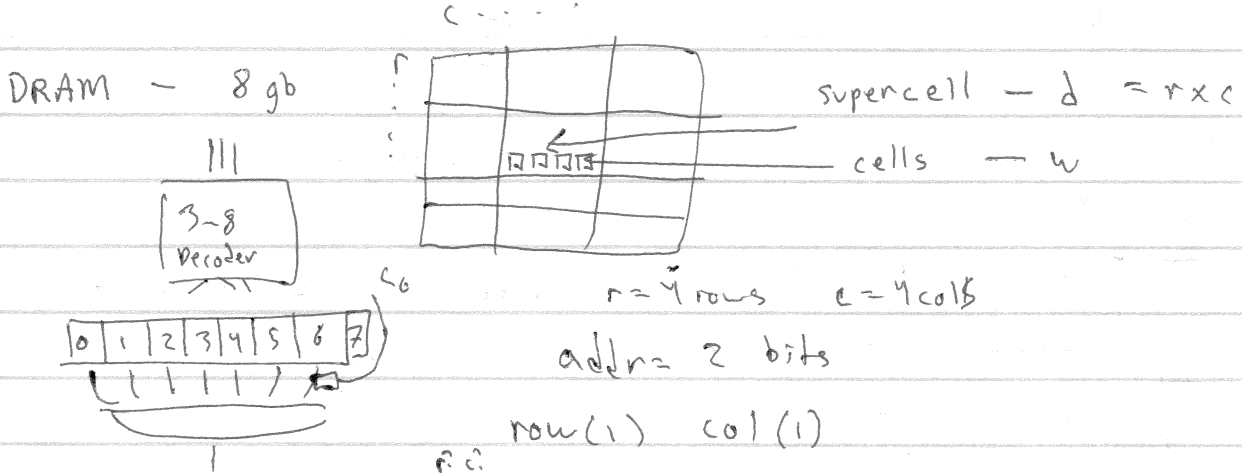 c . . . . .
DRAM - 8 gb
r
supercell - d = r x c
cells - w
3-8
Decoder
r = 4 rows c = 4 cols
0 1 2 3 4 5 6 7
addr = 2 bits
row(1) col(1)